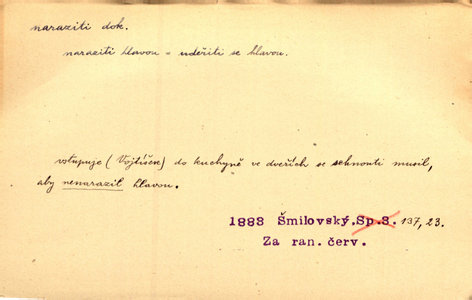 naraziti dok.
naraziti hlavou - udeřiti se hlavou.
vstupuje (Vojtíšek) do kuchyně ve dveřích se sehnouti musil,
aby nenarazil hlavou.
1883 Šmilovský, Sp.3. 137, 23.
Za ran. červ.